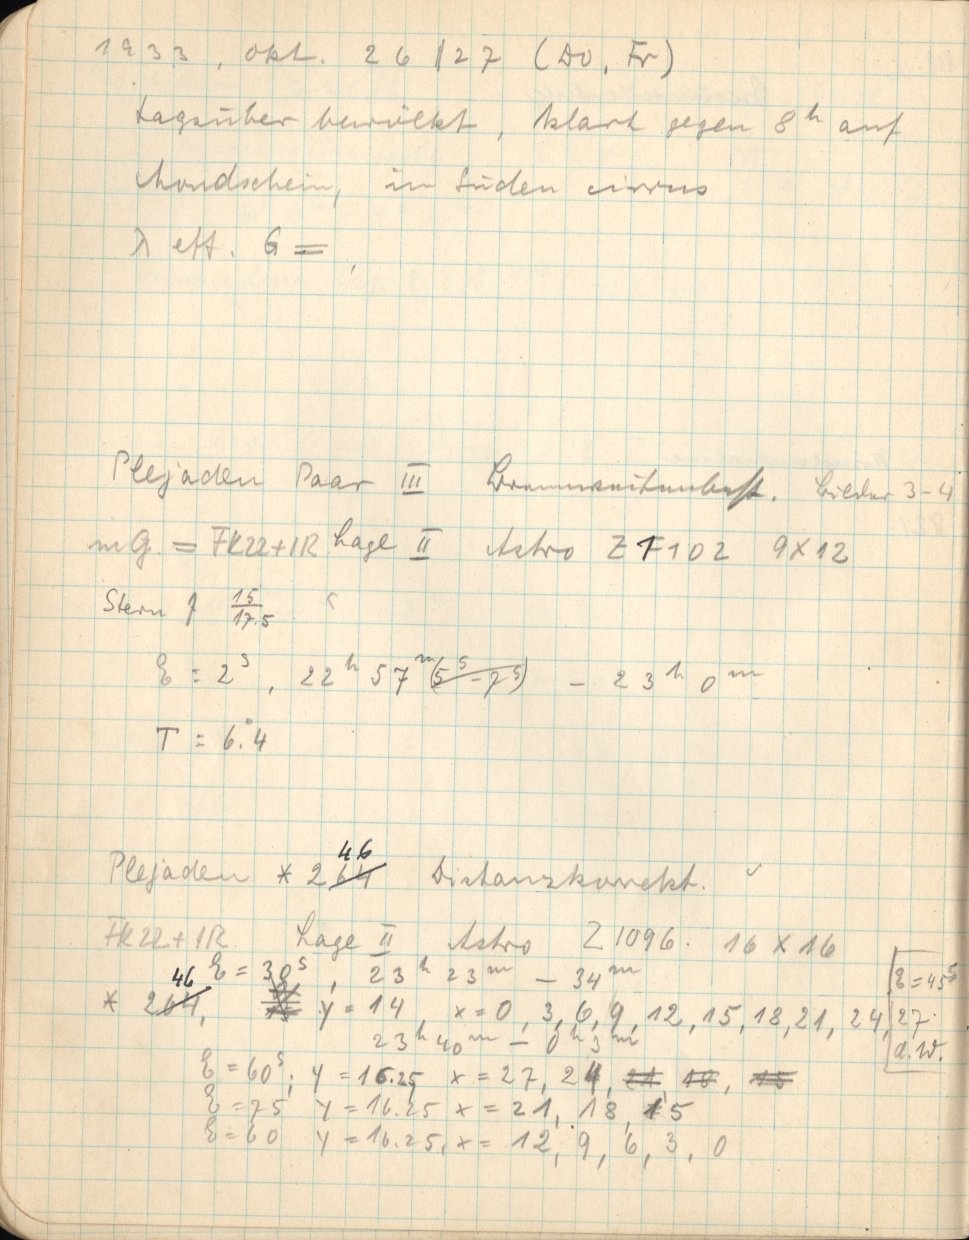 1933, Okt. 26/27 (Do, Fr)
tagsüber bewölkt, klart gegen 8h auf
Mondschein, im Süden cirrus
λ eff. G =
Plejaden Paar III Brennweitenbest. Bilder 3-4
mG = FK22+IR Lage II Astro ZF102 9X12
Stern f 15/17.5
E = 2s, 22h 57m (5s-7s) - 23h 0m
T = 6.°4
46
Plejaden * 264 Distanzkorrekt.
FK22+IR Lage II Astro Z1096. 16 X 16
E = 30s, 23h 23m - 34m E=45s
46
* 264, y = 14, x=0, 3, 6, 9, 12, 15, 18, 21, 24, 27
23h 40m - 0h 3m d.W.
E = 60s, y = 16.25, x = 27, 24, 21, 18, 15
E = 75 y = 16.25 x = 21, 18, 15
E = 60 y = 16.25, x = 12, 9, 6, 3, 0